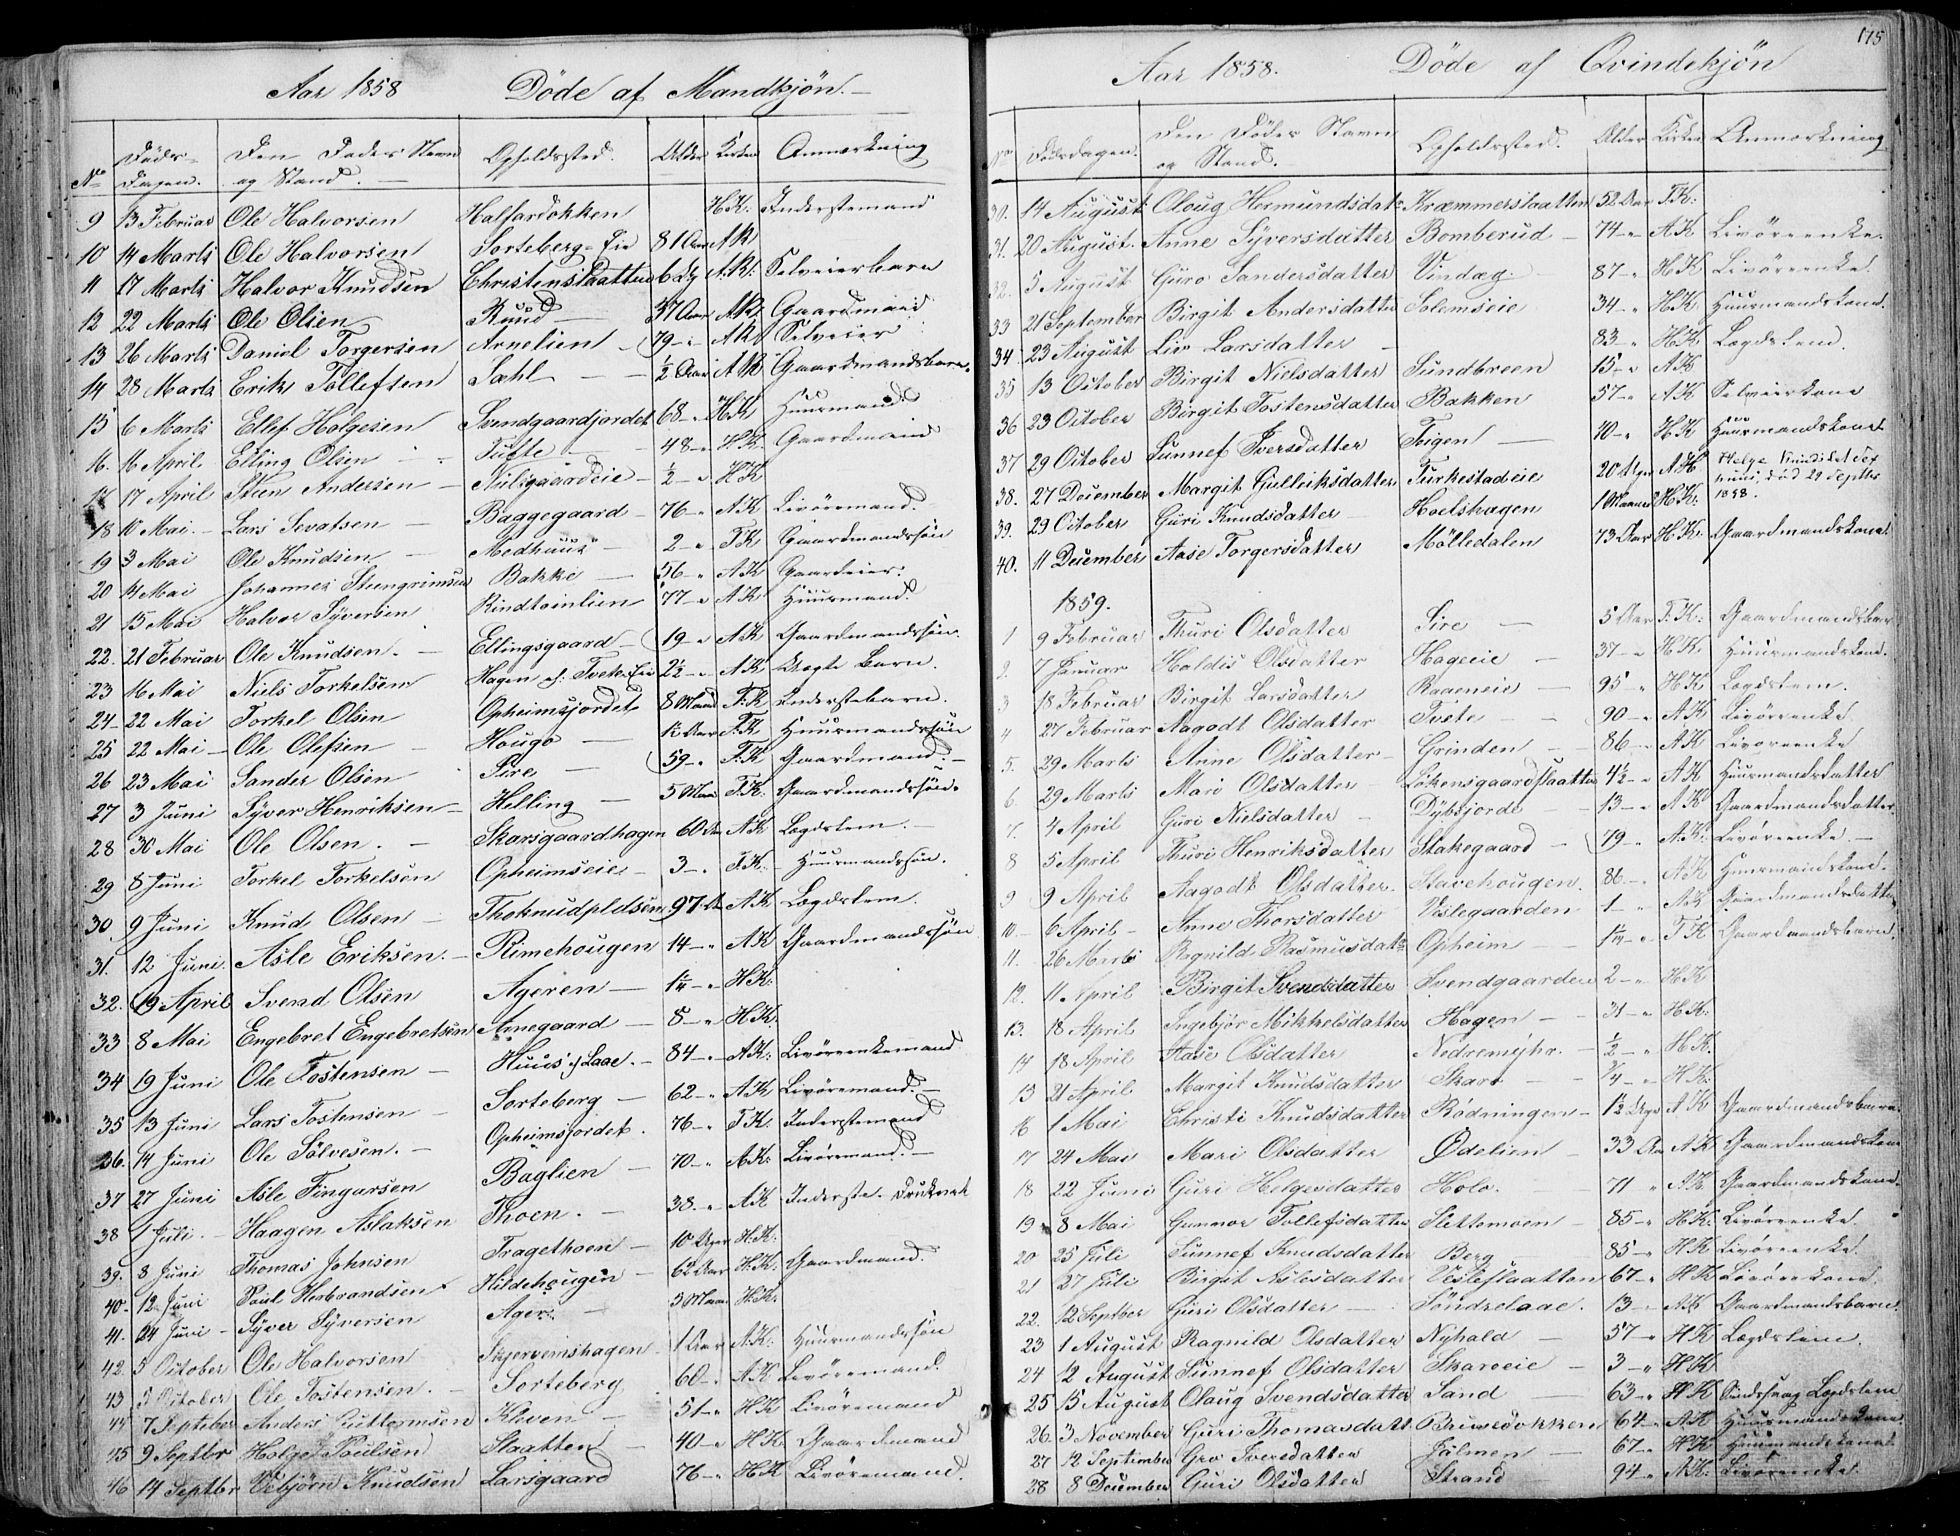 Aar 1858 Døde af Mandkjøn.
No Døds-Dagen. Den Dødes Navn og Stand. Opholdssted. Alder Kirken Anmærkning
9 13 Februar Ole Halvorsen Halfardokken H.K. Inderstemand
10 14 Marts Ole Halvorsen Sorteberg-Eie 81 Aar A K
11 17 Marts Halvor Knudsen Christenslaatten 6 Dg A.K. Selveierbarn
12 22 Marts Ole Olsen Ruud 37 Aar A.K. Gaardmand
13 26 Marts Daniel Torgersen Arnelien 79 - " A K Selveier
14 28 Marts Erik Tollefsen Sahl ½ Aar A K Gaardmandsbarn
15 6 Marts Ellef Holgesen Svendgaardjordet 68 - " H K Huusmand
16. 16 April Elling Olsen Tufte 48 - " H.K. Gaardmand
17 17 April Steen Andersen Nilsgaardeie ½ - " H K
18 10 Mai Lars Sevatsen Baggegaard 76 - " A K Livøremand
19 3 Mai Ole Knudsen Medhuus 2 - " T K Gaardmandssøn
20 14 Mai Johannes Steengrimsen Bakke 56 - " A K Gaardeier.
21 15 Mai Halvor Syversen Rindteinlien 77 - " A K Huusmand
22. 21 Februar Ole Knudsen. Ellingsgaard 19 - " A.K Gaardmandssøn.
23 16 Mai Niels Torkelsen Hagen 2½ - " A.K Uægte Barn.
24 22 Mai Torkel Olsen Opheimsjordet 8 Maand T.K Inderstebarn.
25 22 Mai Ole Olefsen Hougo Aar T.K Huusmandssøn
26 23 Mai Sander Olsen Sire 59 - " T.K Gaardmand
27 3 Juni Syver Henriksen Helling 5 Maan T.K. Gaardmandssøn
28 30 Mai Ole Olsen. Skarsgaardhagen 60 A K Lægdslem.
29 8 Juni Torkel Torkelsen Opheimseie 3 - " T.K. Huusmandssøn.
30 9 Juni Knud Olsen 97 A K Lægdslem.
31. 12 Juni Asle Eriksen. Rimehougen 14 - " A K Gaardmandssøn
32. 19 April Svend Olsen Ageren 1¼ - " H K.
33 8 Mai Engebret Engebretsen Arnegaard 8 - " H.K.
34 19 Juni Ole Tostensen Huus i Laae. 84 - " A.K. Livøreenkemand
35 13 Juni Lars Tostensen Sorteberg 62 - " A K Livøremand.
36. 14 Juni Ole Sølvesen. Opheimsjordet. 76 - " T.K. Inderstemand
37 27 Juni Asle Fingarsen Baglien 70 - " A.K. Livøremand.
38 1 Juli Haagen Aslaksen Thoen. 38 - " A K Inderste. Druknet
39. 8 Juni Thomas Johnsen Tragethoen 10 Uger H.K.
40. 12 Juni Paul Herbrandsen Hildehougen 62 Aar H.K. Gaardmand
41. 24 Juni Syver Syversen Ager 3 Maan H.K.
42. 5 October Ole Halvorsen Skjerveimshagen 1 Aar A.K. Huusmandssøn
43 5 October Ole Tostensen. Sorteberg 60 - A K Livøremand
44 7 September Anders Guttormsen Kleven 51 - " H K Livøremand
45 9 Septbr Holge Poulsen Slaatten 40 - " H K Gaardmand
46 14 Septbr Vebjørn Knudsen Larsgaard 76 - " H K Livøremand.
175
Aar 1858. Døde af Qvindekjøn
No Dødsdagen. Den Dødes Navn og Stand. Opholdssted. Alder Kirken Anmærkning
30. 14 August Oloug Hermundsdatr Kræmmerslaatten 52 Aar T.K.
31. 20 August Anne Syversdatter Bomberud 74 - " A K Livøreenke.
32. 5 August Guro Sandersdatter Vindæg 87 - " H K Livøreenke
33 21 September Birgit Andersdatter Solemseie 34 - " H.K Huusmandskone.
34. 23 August Liv Larsdatter 83 - " H.K Lægdslem.
35 13 October Birgit Nielsdatter Sundbreen 15 - " A K
36 23 October Birgit Tostensdatter Bakken 57 - " A K Selveierkone
37 29 October Sunnef Iversdatter Toigen 70 - " H K Huusmandskone
38. 27 December Margit Gulleiksdatter Turkestadeie 20 Uger A K
39. 29 October Guri Knudsdatter Hoelshagen 1 Maaned H K. 1858.
40. 11 December Aase Torgersdatter Mølledalen 73 Aar H K. Gaardmandskone
1859.
1 9 Februar Thuri Olsdatter Sire 5 Aar T.K. Gaardmandsbarn
2 7 Januar Haldis Olsdatter Hageeie 37 - " H.K. Huusmandskone.
3 18 Februar Birgit Larsdatter Raaeneie 95 - " H K Lægdslem.
4 27 Februar Aagodt Olsdatter Tvete 90 - " A K Livøreenke
5. 29 Marts Anne Olsdatter Grinden 86 - " A K Livøreenke
6. 29 Marts Mari Olsdatter Løkensgaardslaatten 4½ - " A K Huusmandsdatter
7. 4 April Guri Nielsdatter Dybsjorde 13 - " A K Gaardmandsdatter
8 5 April Thuri Henriksdatter Stakegaard 79 - " A.K. Livøreenke
9 9 April Aagodt Olsdatter Stavehougen. 86 - " A K Huusmandskone.
10 6 April Anne Thorsdatter Veslegaarden 1 - " A K Gaardmandsdatter
11. 26 Marts Ragnild Rasmusdatr Opheim 1¼ - " T K Gaardmandsbarn
12. 11 April Birgit Svendsdatter Svendgaarden 2 - " H K
13. 18 April Ingebjør Mikkelsdatter Hagen 31 - " H K.
14 18 April Aase Olsdatter ½ - " H K.
15 21 April Margit Knudsdatter Skaro ¼ - " H K.
16 1 Mai Christi Knudsdatter Rødningen 12 Uger A K Gaardmandsbarn
17 24 Mai Mari Olsdatter Ødelien 33 Aar A K Gaardmandskone
18 22 Juni Guri Helgesdatter Holo. 71 " A K Gaardmandskone
19 8 Mai Gunnor Tollefsdatter Slettemoen 85 - " H K. Livøreenke
20 25 Juli Sunnef Knudsdatter Berg 85 - " H K Livøreenke.
21 27 Juli Birgit Aslesdatter Vesleslaatten 67 - " H K Livørekone.
22. 12 Septber Guri Olsdatter Søndrelaae. 13 - " A K Gaardmandsbarn.
23 1 August Ragnild Olsdatter Nyhald 57 - " H K Lægdslem.
24 12 August Sunnef Olsdatter Skaroeie 3 - " H K
25 15 August Olaug Svendsdatter Sand 63 - " H K Lægdslem
26. 3 November Guri Thomasdatt. 64 - " A K Huusmandskone
27 12 September Gro Iversdatter Jalmen 67 - " H K Huusmandskone
28 8 December Guri Olsdatter Strand 94 - " A K. Livøreenke